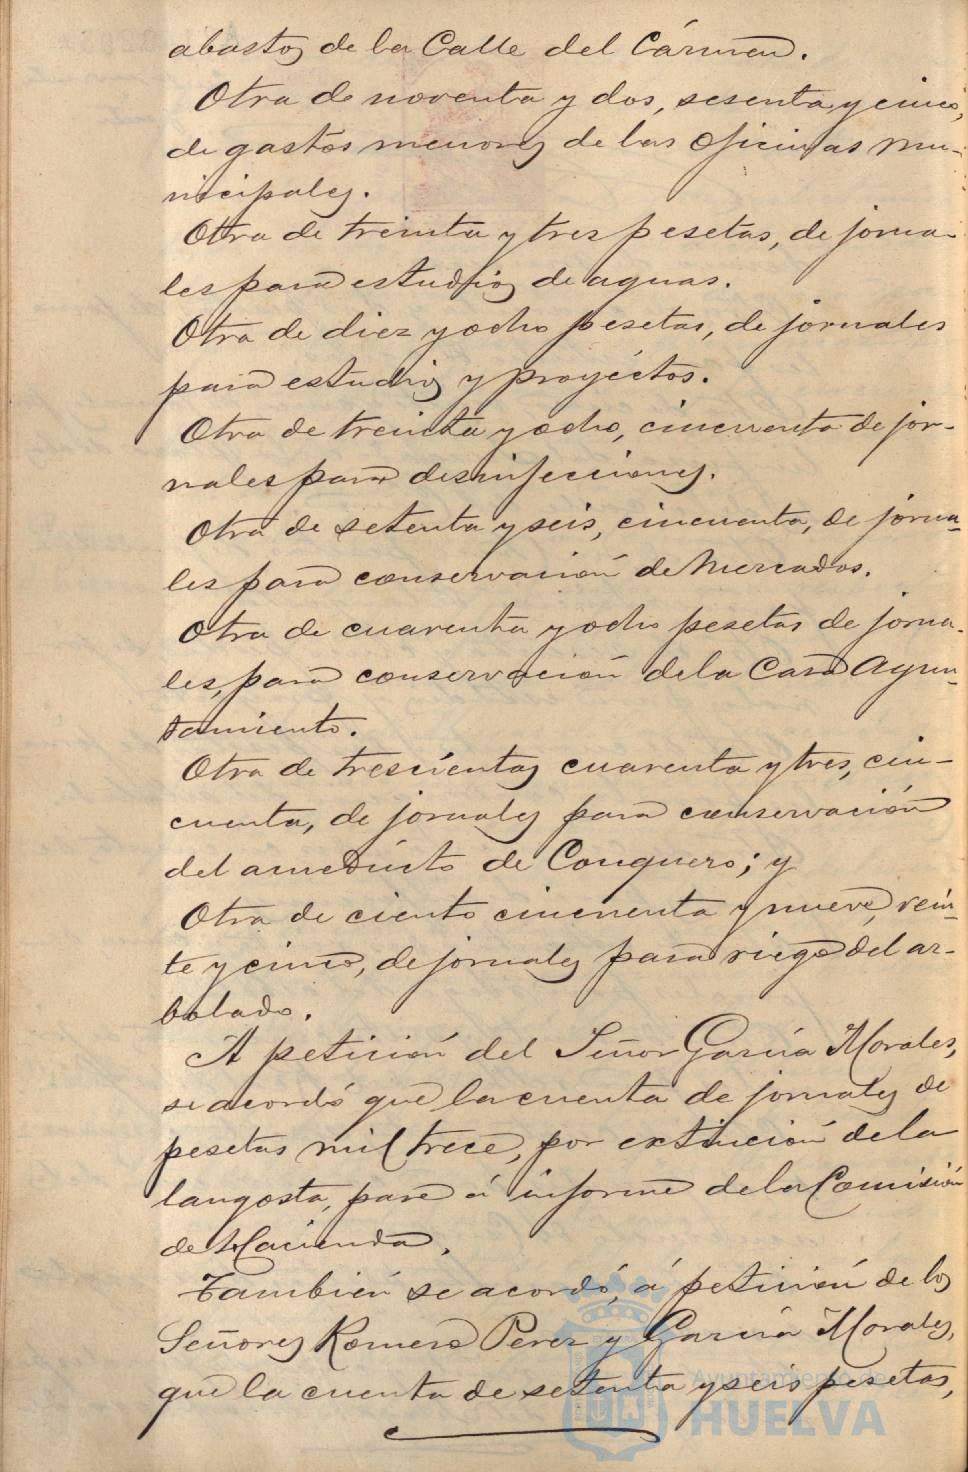 abastos de la Calle del Cármen.
Otra de noventa y dos, sesenta y cinco,
de gastos menores de las oficinas mu-
nicipales.
Otra de treinta y tres pesetas, de jorna-
les para estudios de aguas.
Otra de diez y ocho pesetas, de jornales
para estudios y proyectos.
Otra de treinta y ocho, cincuenta de jor-
nales para desinfecciones.
Otra de setenta y seis, cincuenta, de jorna-
les para conservación de Mercados.
Otra de cuarenta y ocho pesetas de jorna-
les, para conservación de la Casa Ayun-
tamiento.
Otra de trescientas cuarenta y tres, cin-
cuenta, de jornales para conservación
del acueducto de Conquero; y
Otra de ciento cincuenta y nueve, vein-
te y cinco, de jornales para riego del ar-
bolado.
A petición del Señor García Morales,
se acordó que la cuenta de jornales de
pesetas mil trece, por extinción de la
langosta, pase á informe de la Comisión
de Hacienda.
También se acordó, á petición de los
Señores Romero Perez y García Morales,
que la cuenta de setenta y seis pesetas,
Ayuntamiento de
HUELVA